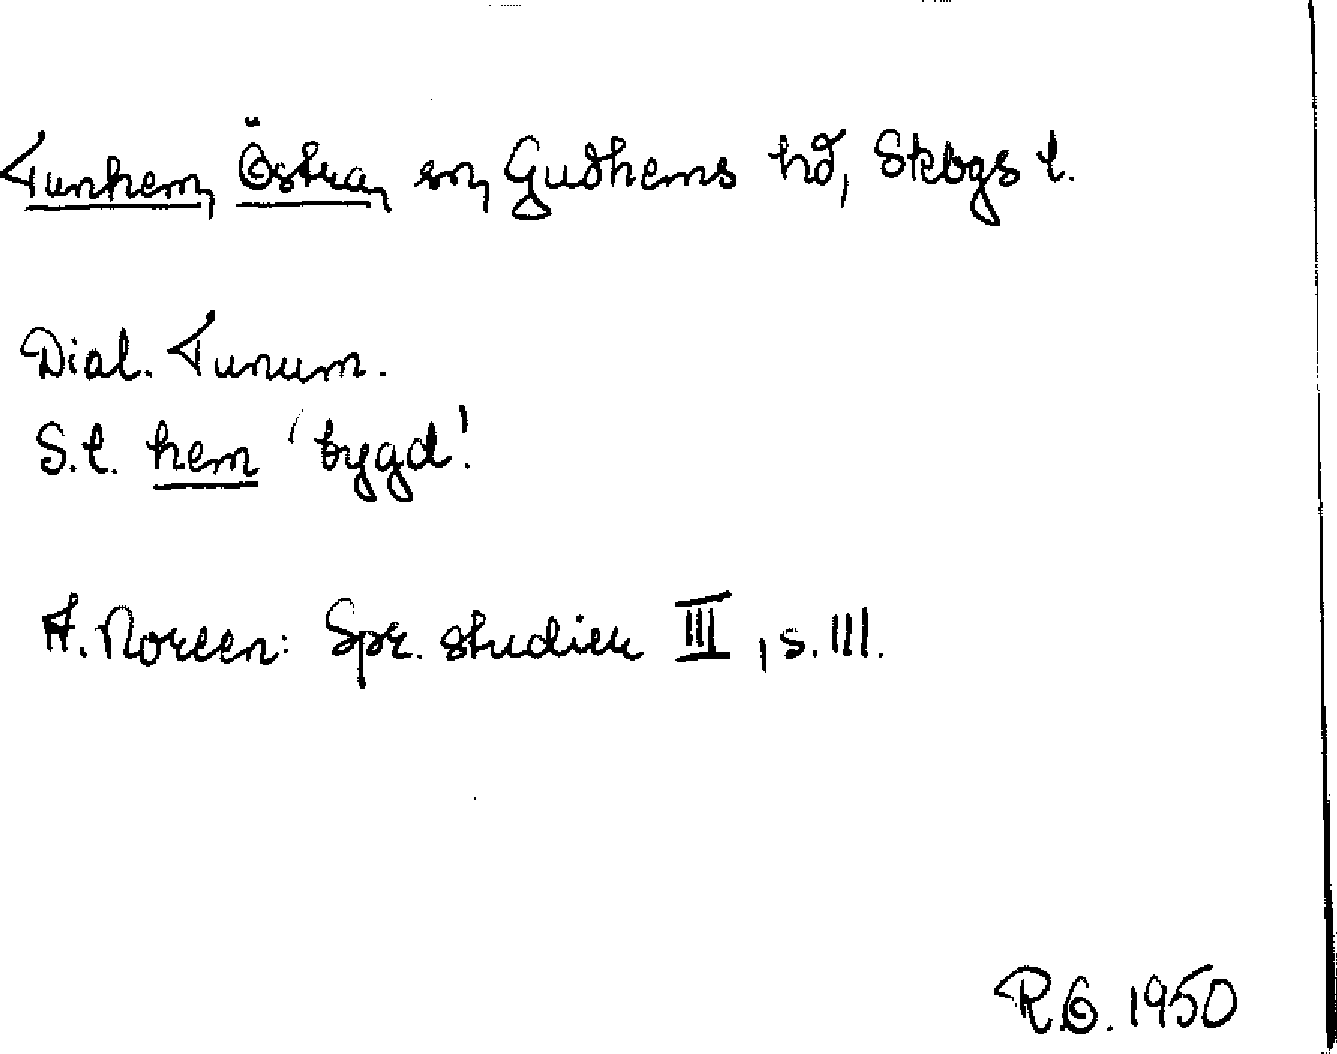 Tunhem, Östra, sn, Gudhems hd, Skbgs l.
Dial. Tunum.
S.l. hem 'bygd'.
A. Noreen: Spr. studier III, s. 111.
R G. 1950